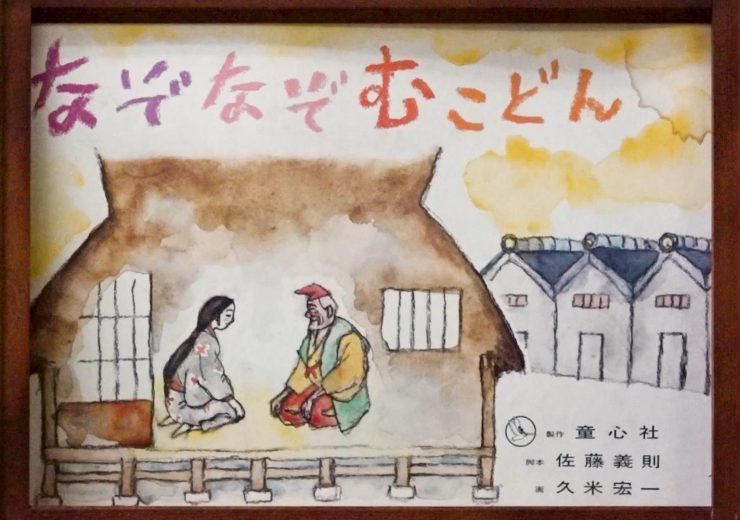 なぞなぞむこどん
製作 童心社
脚本 佐藤義則
画 久米宏一